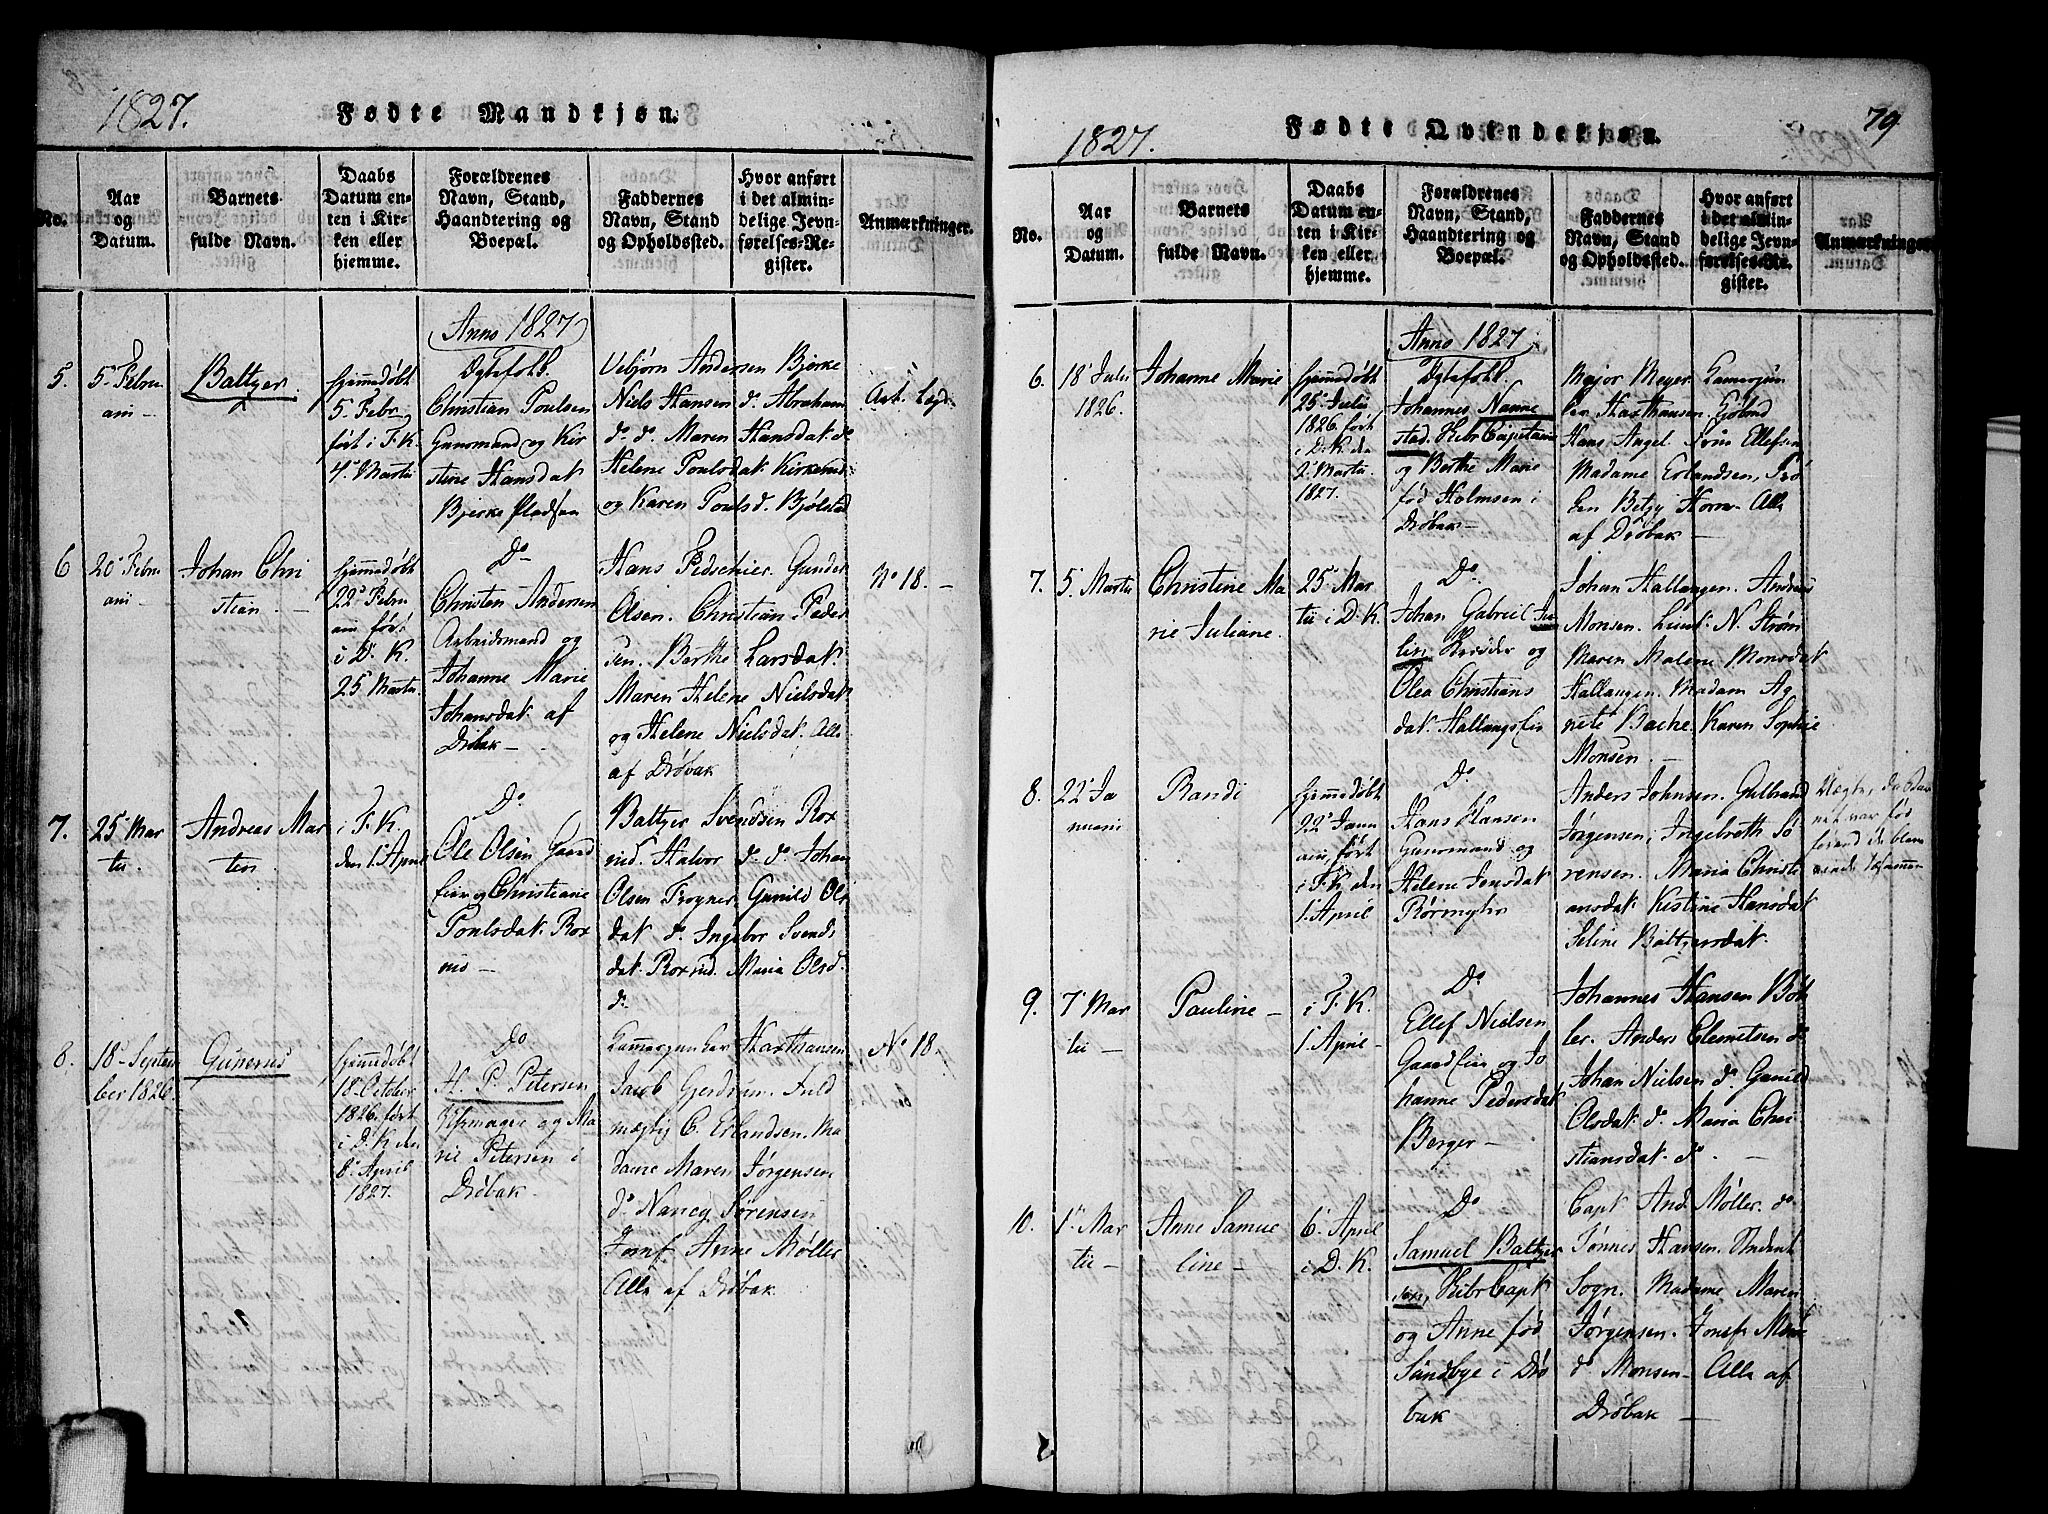 1827.
Fødte Mandkjøn.
No.
Aar
og
Datum.
Barnets
fulde Navn.
Daabs
Datum en-
ten i Kir-
ken eller
hjemme.
Forældrenes
Navn, Stand,
Haandtering og
Boepæl.
Faddernes
Navn, Stand
og Opholdssted.
Hvor anført
i det almin-
delige Jevn-
førelses-Re-
gister.
Anmærkninger.
Anno 1827
5.
5. Febru
ari -
Baltzer
hjemmedøbt
5. Febr
ført i F. K.
4. Martii
Ægtefolk.
Christian Poulsen
Gunsmand og Kir
stine Hansdat
Bjerke Pladsen
Vebjørn Andersen Bjerke
Niels Hansen do Abraham
do do Maren Hansdat. do
Helene Poulsdat. Kirkerud
og Karen Poulsd. Bjølstad
6
20 Febru
ari -
Johan Chri
stian -
hjemmedøbt
22 Febru
ari ført
i D. K.
25 Martii
Do
Christen Andersen
Arbeidsmand og
Johanne Marie
Johansdat. af
Drøbak -
Hans Pedschier. Gunder
Olsen. Christian Peder
sen. Berthe Larsdat.
Maren Helene Nielsdat.
og Helene Nielsdat. Alle
af Drøbak
No 18. -
7.
25 Mar
tii.
Andreas Mar
ten.
i F. K.
den 1 April
Do
Ole Olsen Gaard
feier og Christiane
Poulsdat. Rox
rud -
Baltzer Svendsen Rox
rud. Halvor do do Johan
Olsen Frogner Gunild Ols
dat. do Ingebor Svends
dat. Roxrud. Maria Olsd.
do
8.
18 Septem
ber 1826.
Gunerus
hjemmedøbt
18 October
1826. ført
i D. K. den
8 April
1827.
Do
H. P. Petersen
og Ma
rie Petersen i
Drøbak.
Kammerjunker Haxthausen
Jacob Gjerdrum. Fuld
mægtig C. Erlandsen. Ma
dame Maren Jørgensen
do Nancy Sørensen
Jomf. Anne Møller
Alle af Drøbak
No 18.
79
1827.
Fødte Qvindekjøn.
No.
Aar
og
Datum.
Barnets
fulde Navn.
Daabs
Datum en-
ten i Kir-
ken eller
hjemme.
Forældrenes
Navn, Stand,
Haandtering og
Boepæl.
Faddernes
Navn, Stand
og Opholdssted.
Hvor anført
i det almin-
delige Jevn-
førelses-Re-
gister.
Anmærkninger
Anno 1827
6.
18 Julii
1826.
Johanne Marie
hjemmedøbt
25 Julii
1826. ført
i D. K. den
2 Martii
1827.
Ægtefolk.
Johannes Nanne
stad. Skibs Capitaine
og Berthe Marie
fød Holmsen i
Drøbak -
Major Meyer. Kammerjun
ker Haxthausen.
Hans Angel Iver Ellefsen
Madame Erlandsen, Frø
ken Betzy Horne - Alle
af Drøbak -
7.
5. Martii
Christine Ma
rie Juliane.
25 Mar
tii i D. K.
Do
Johan Gabriel Ju
lin og
Olea Christians
dat. Hallangs Eie
Johan Hallangen. Andreas
Monsen. N. Strøm
Maren Malene Monsdat
Hallangen. Madam Ag
nete Bache. Karen Sophie
Monsen. -
8.
22 Ja
nuari
Randi
hjemmedøbt
22 Janu
arii, ført
i F. K. den
1 April
Do
Hans Hansen
Gunsmand og
Helene Jensdat.
Anders Johnsen. Gulbrand
Jørgensen, Ingebreth Sø
rensen. Maria Christi
ansdat. Kistine Hansdat.
Seline Baltzersdat.
Uægte, da Bar
net var fød
førend de blev
9.
7 Mar
tii -
Pauline -
i F. K.
1 April -
Do
Ellef Nielsen
Gaard Eier og Jo
hanne Pedersdat
Berger -
Johannes Hansen Bøh
ler. Anders Clemetsen do
Johan Nielsen do Gunild
Olsdat. do Maria Chri
stiansdat. do -
10.
1 Mar
tii -
Anne Samue
line -
6 April
i D. K.
Do
Samuel Baltzer
sen, Skibs Capt
og Anne fød
Sandbye i Drø
bak
Capt And. Møller. do
Tønnes Hansen. Student
Sogn. Madame Maren
Jørgensen. Jomfr.
do Monsen - Alle af
Drøbak -